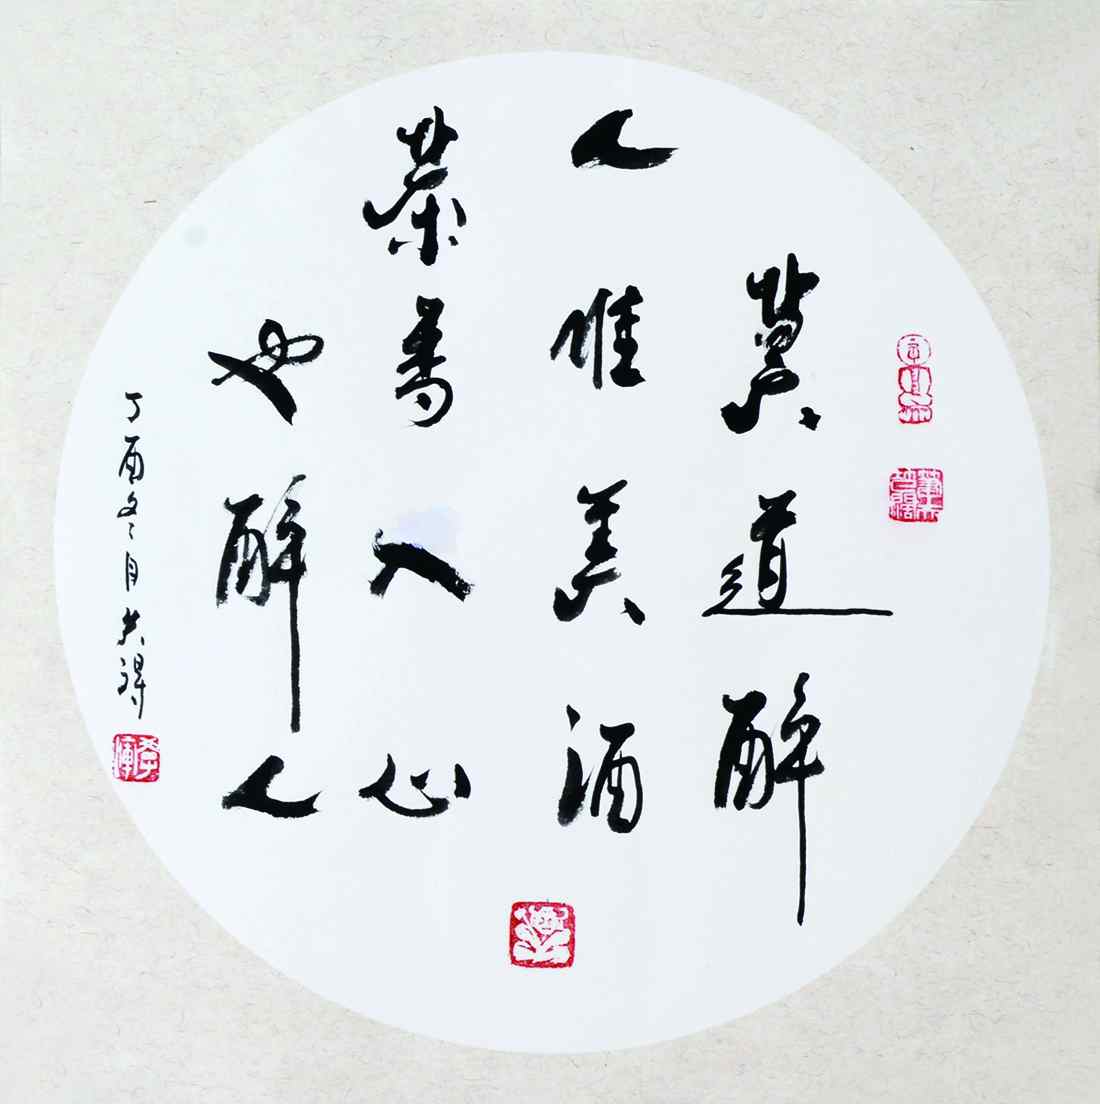 莫道醉
人唯美酒
茶香入心
也醉人
丁酉冬月共得